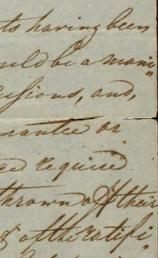 ts having been
uld be a mani„
cussions, and,
arantee or
ces required
thrown off their
of the ratifi„